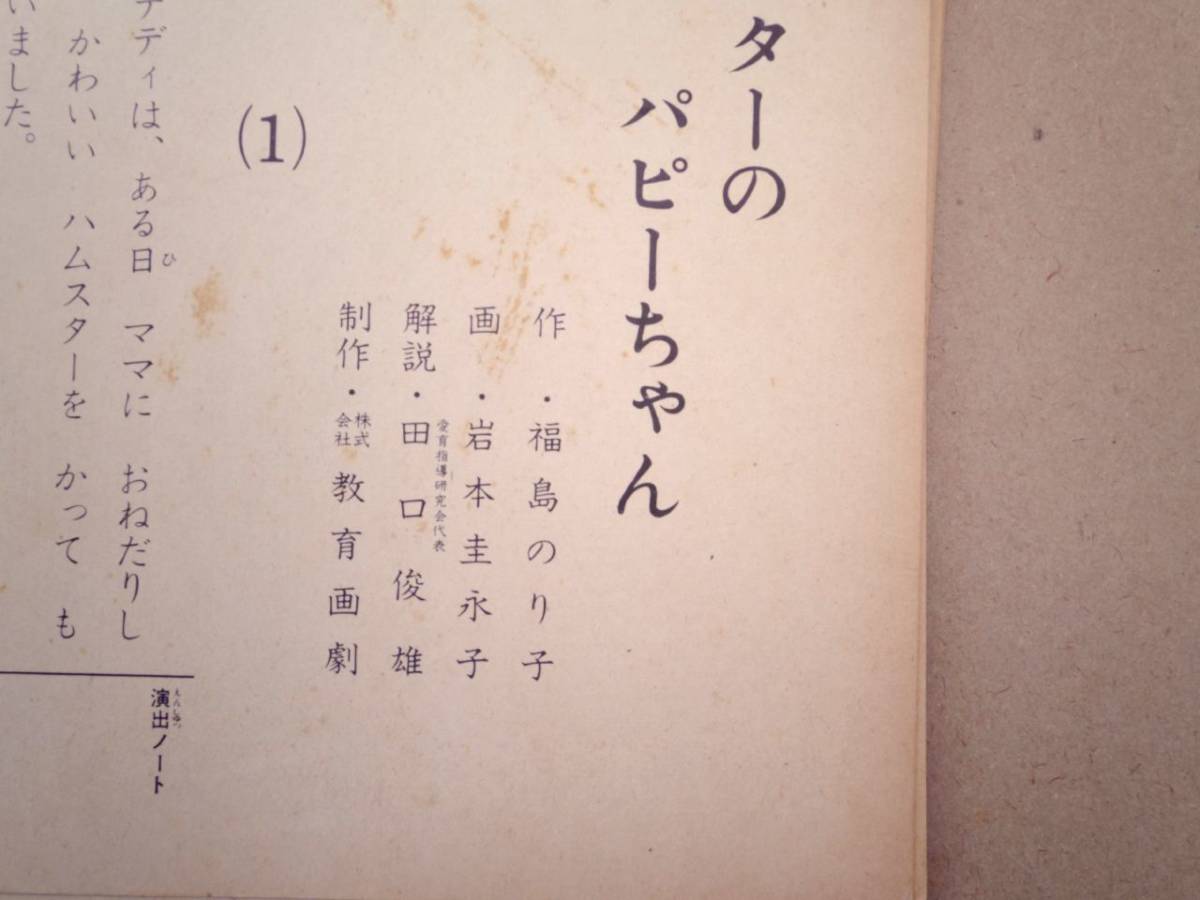 ターの
パピーちゃん
作・福島のり子
画・岩本圭永子
愛育指導研究会代表
解説・田口俊雄
制作・株式会社教育画劇
(1)
ディは、ある日 ママに おねだりし
ひ
かわいい ハムスターを かって も
いました。
演出ノート
えんしゅつ